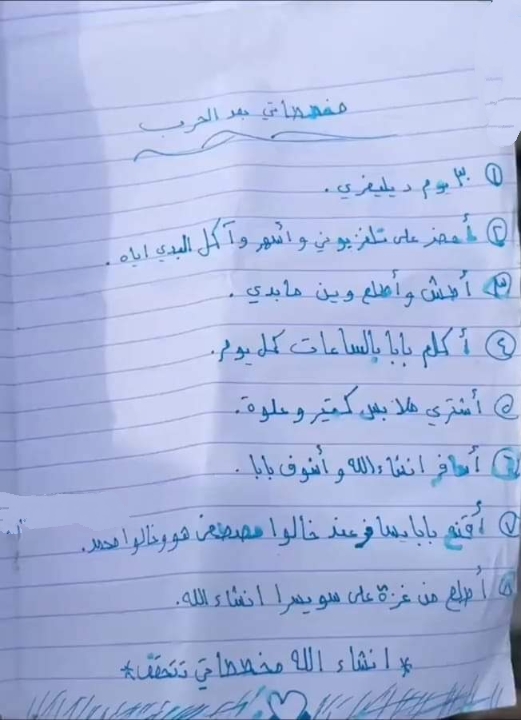 مخططاتي بعد الحرب
① ٣٠ يوم ديليفري.
② أحضر على تلفزيوني وأسهر وآكل البدي اياه.
③ أطش وأطلع وين مابدي.
④ أكلم بابا بالساعات كل يوم.
⑤ أشتري ملابس كتير وحلوة.
⑥ أسافر انشاءالله وأشوف بابا.
⑦ أقنع بابا يسافر عند خالوا مصطفى هو وخالوا محمد.
⑧ أطلع من غزة على سويسرا انشاءالله.
*انشاء الله مخططاتي تتحقق*